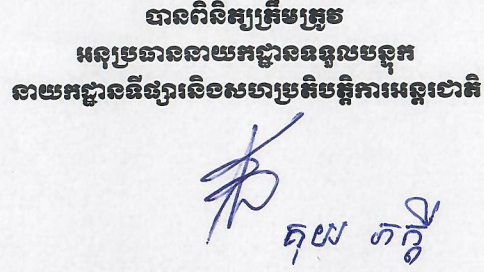 បានពិនិត្យត្រឹមត្រូវ
អនុប្រធាននាយកដ្ឋានទទួលបន្ទុក
នាយកដ្ឋានទីផ្សារនិងសហប្រតិបត្តិការអន្តរជាតិ
គុយ ភក្តី